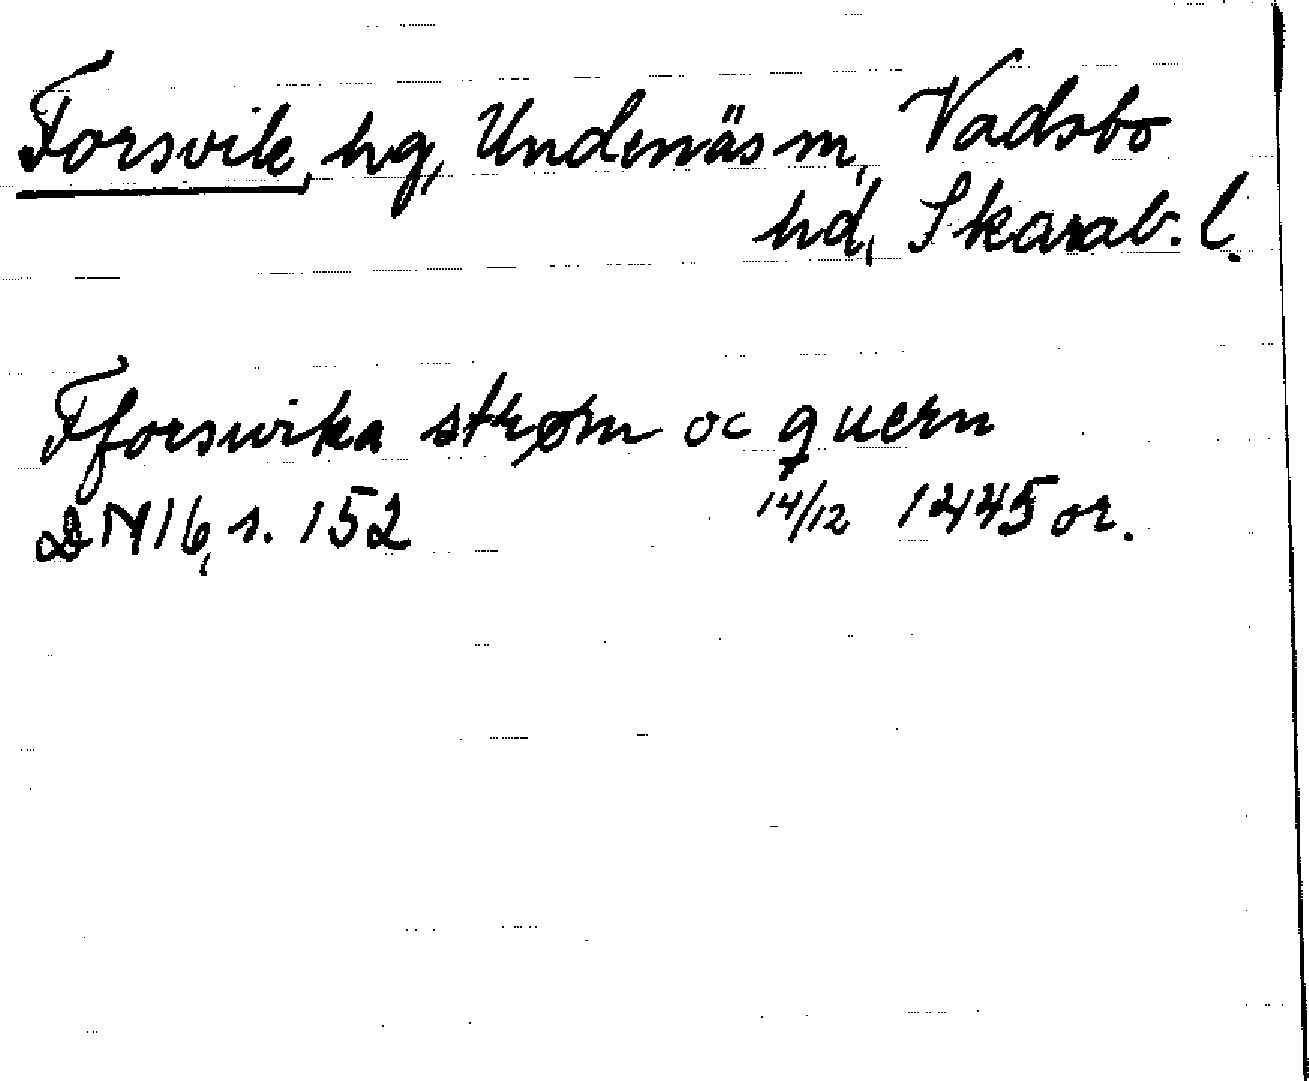 Forsvik, hg, Undenäs m, Vadsbo
hd, Skarab. l.
Fforswika strøm oc quern
DN 16, s. 152 14/12 1445 or.